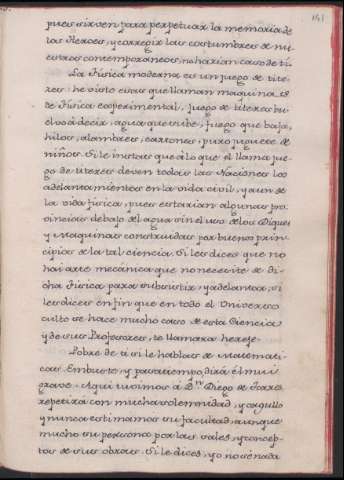 141
pues sirven para perpetuar la memoria de
los Heroes, y corregir las costumbres de nu-
estros contemporaneos, no harian caso de ti.
La Fisica moderna es un juego de tite-
rez: he visto esas que llaman maquinas
de Fisica experimental, juego de titeres bu-
elvo à decir, agua que sube, fuego que baja,
hilos, alambres, cartones, puro juguete de
niños. Si le instas que à lo que el llama jue-
go de titeres deven todas las Naciones los
adelantamientos en la vida civil, y aun de
la vida fisica, pues estarian algunas pro-
vincias debajo del agua sin el uso de los Diques
y Maquinas construidas por buenos prin-
cipios de la tal ciencia. Si les dices que no
hai arte mecanica que no necesite de di-
cha Fisica para subsistir, y adelantar, si
les dices en fin que en todo el Universo
culto se hace mucho caso de esta Ciencia,
y de sus Profesores, te llamara herege.
Pobre de ti si le hablas de Matemati-
cas. Embuste, y pasatiempo, dirà él mui
grave. Aqui tuvimos à Dn. Diego de Torres
repetira con mucha solemnidad, y orgullo
y nunca estimamos su facultad, aunque
mucho su persona por las sales, y concep-
tos de sus obras. Si le dices, yo no sè nada